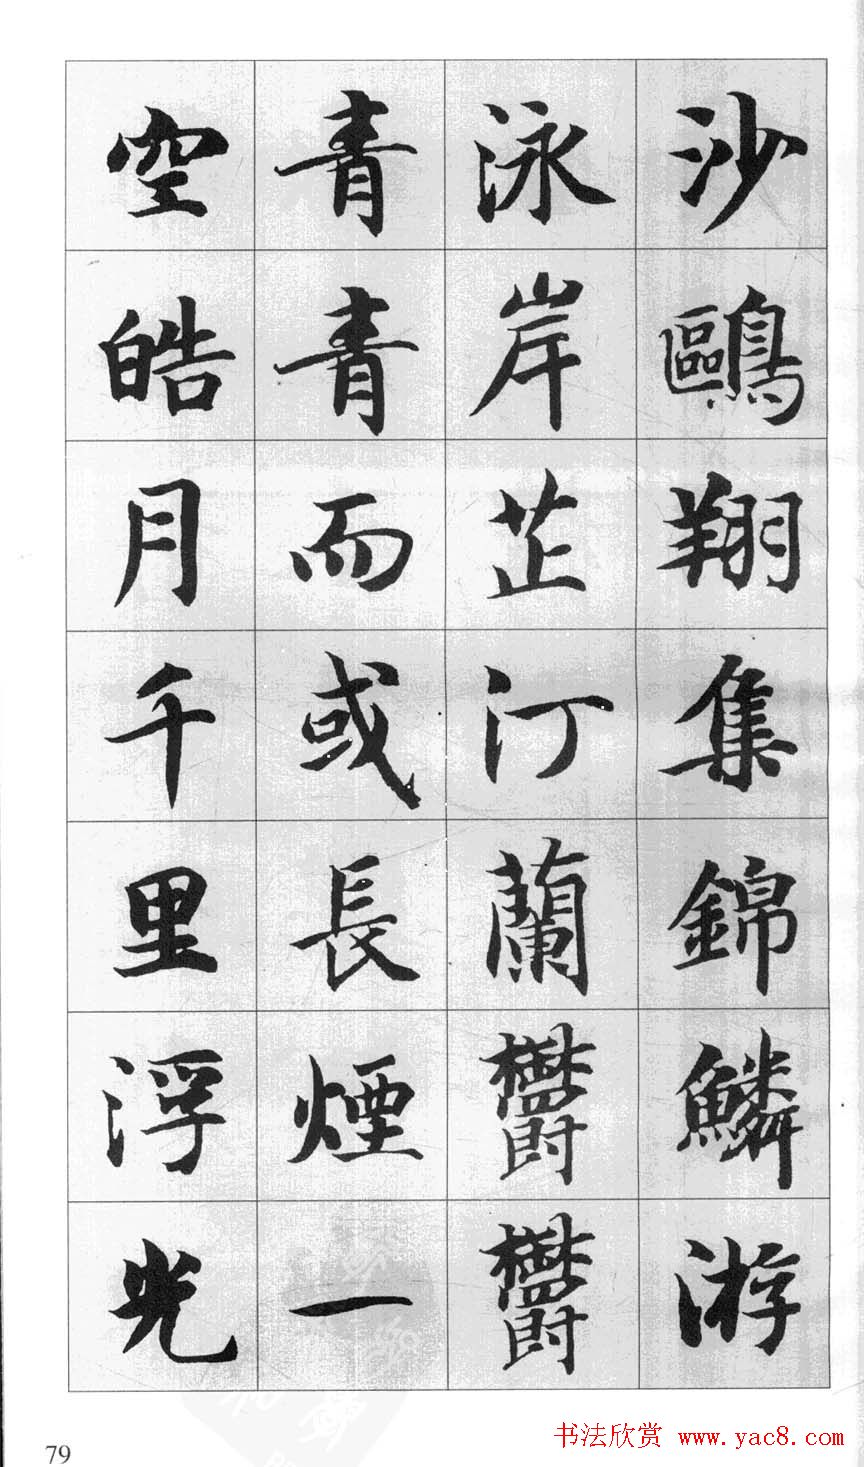 沙鷗翔集錦鱗游
泳岸芷汀蘭鬱鬱
青青而或長煙一
空皓月千里浮光
79
书法欣赏 www.yac8.com